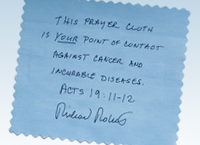 THIS PRAYER CLOTH
IS YOUR POINT OF CONTACT
AGAINST CANCER AND
INCURABLE DISEASES.
ACTS 19:11-12
Richard Roberts